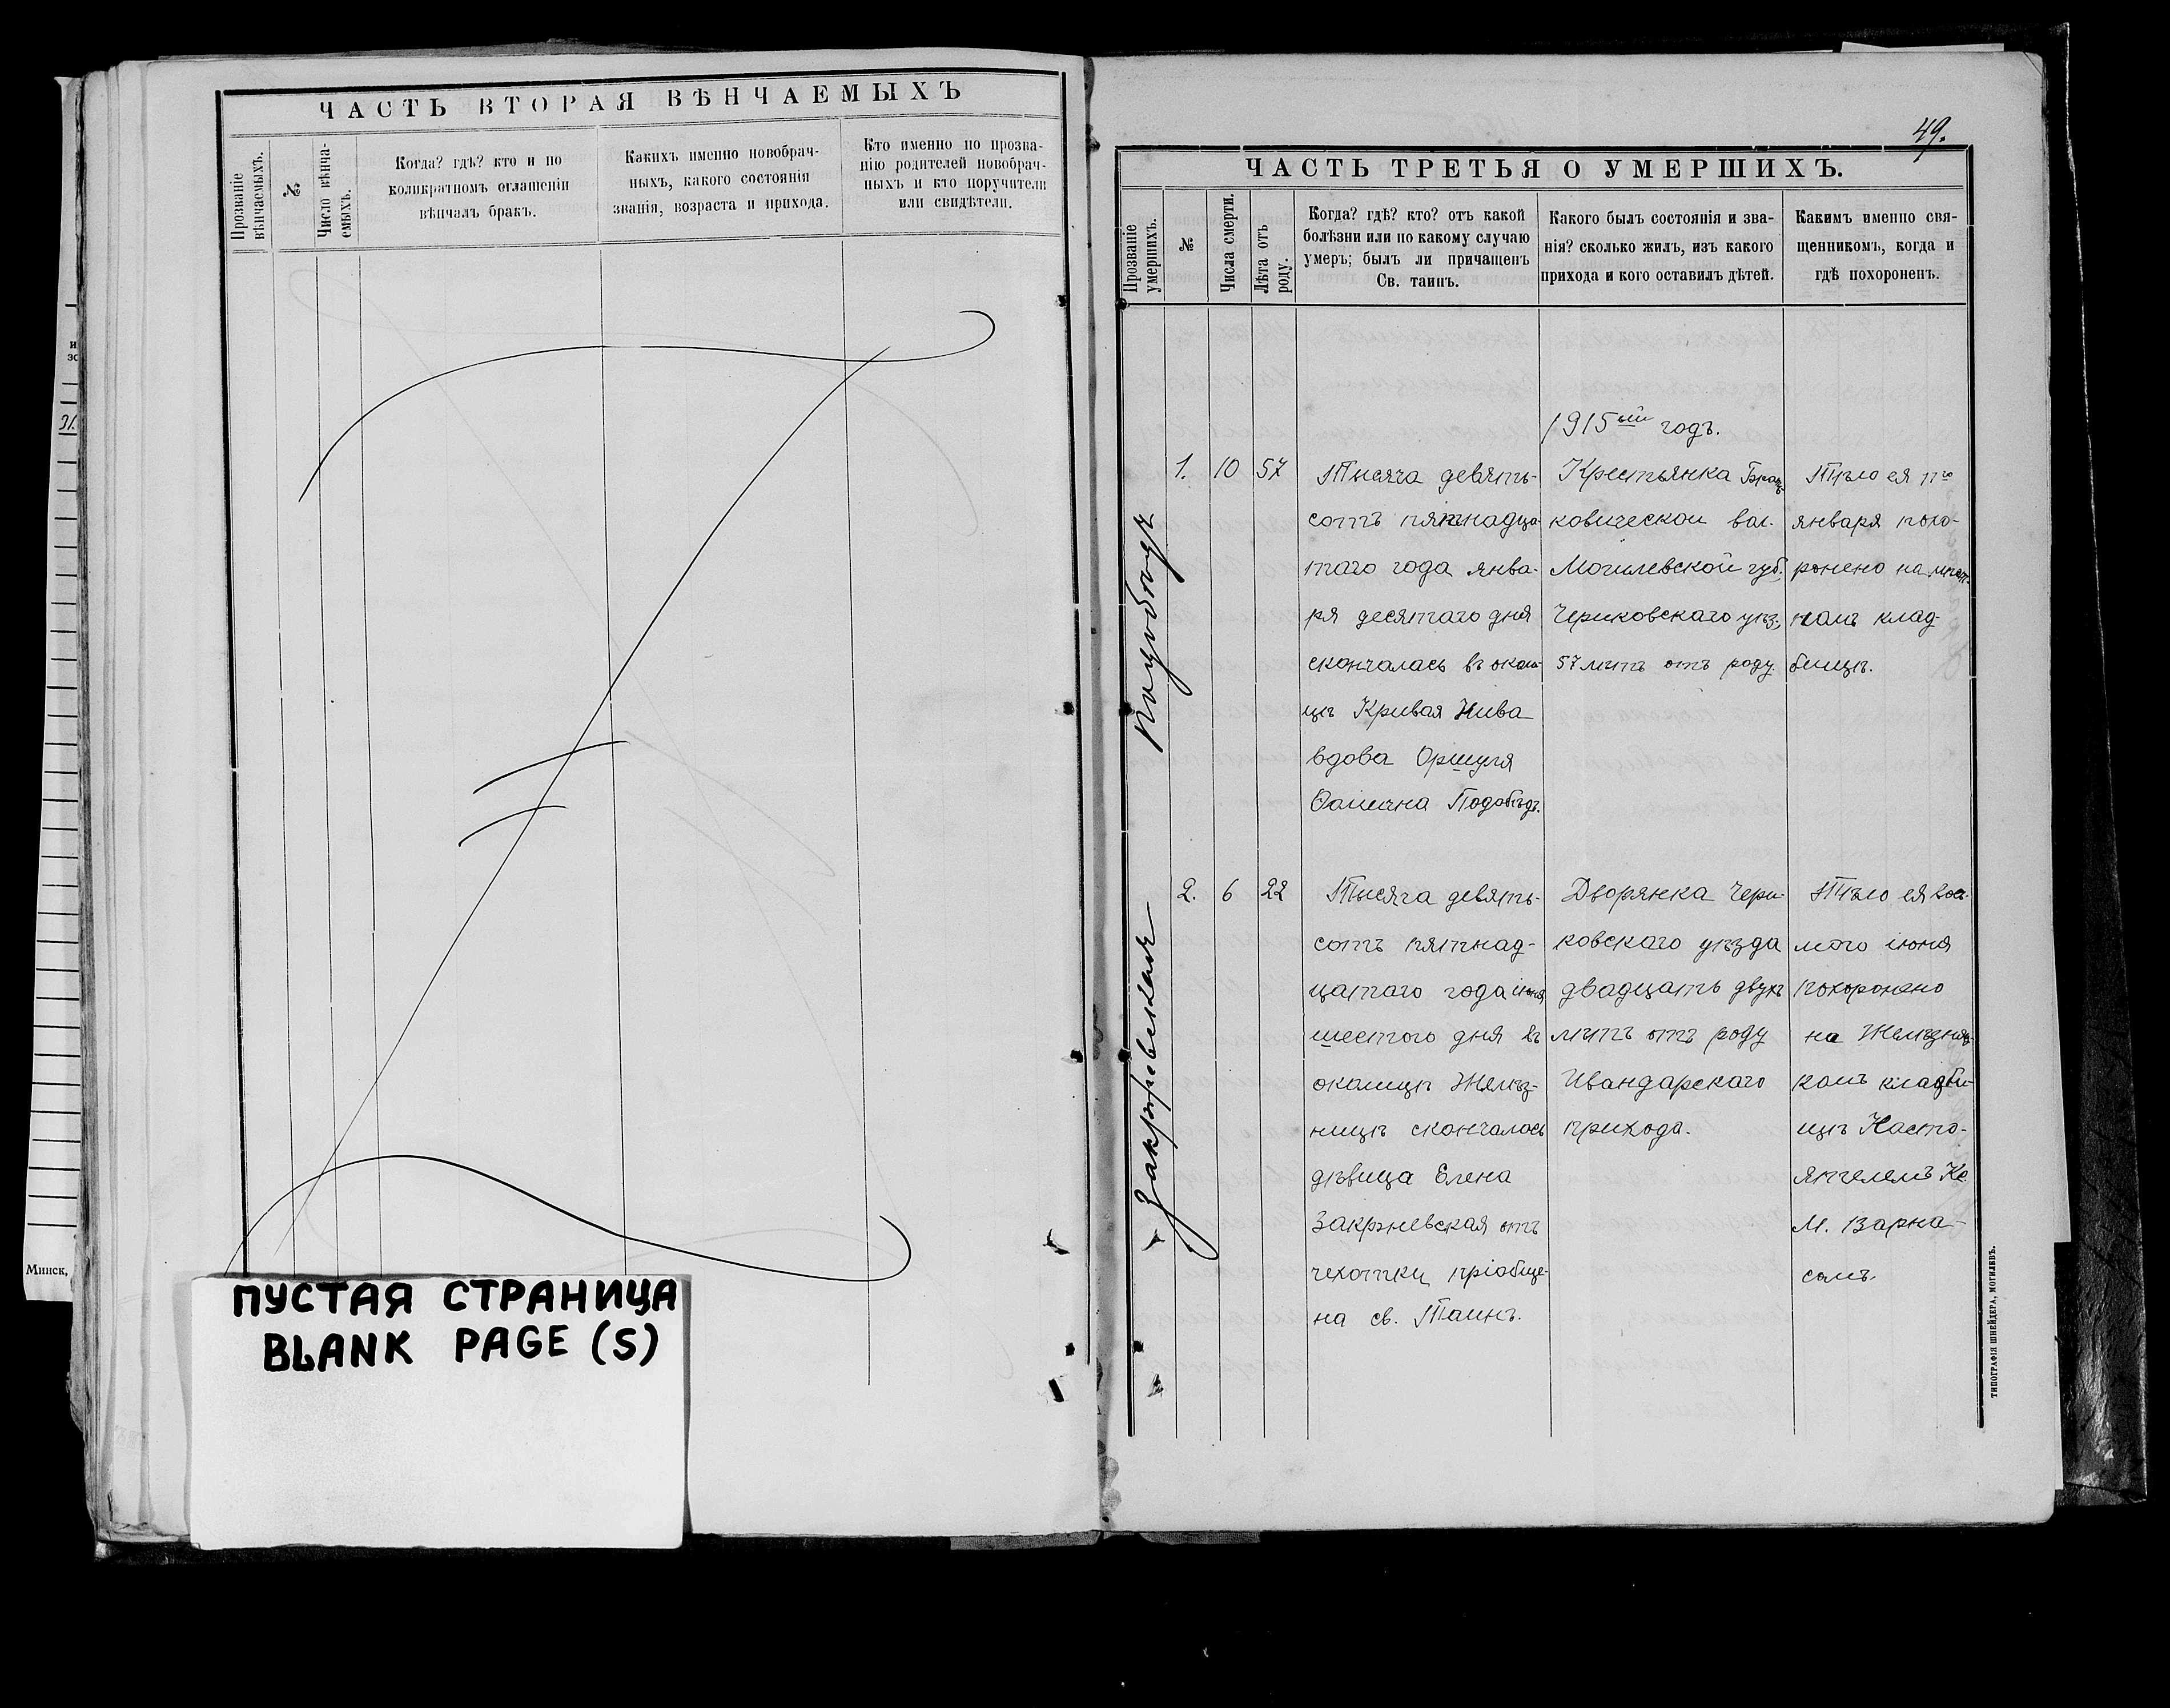 ЧАСТЬ ВТОРАЯ ВѢНЧАЕМЫХЪ
Прозваніе вѣнчаемыхъ.
№
Число вѣнча-
емыхъ.
Когда? гдѣ? кто и по
коликратномъ оглашеніи
вѣнчалъ бракъ.
Какихъ именно новобрач-
ныхъ, какого состоянія
званія, возраста и прихода.
Кто именно по прозва-
нію родителей новобрач-
ныхъ и кто поручители
или свидѣтели.
31.
Минск,
ПУСТАЯ СТРАНИЦА
BLANK PAGE (S)
49.
ЧАСТЬ ТРЕТЬЯ О УМЕРШИХЪ.
Прозваніе
умершихъ.
№
Числа смерти.
Лѣта отъ
роду.
Когда? гдѣ? кто? отъ какой
болѣзни или по какому случаю
умеръ; былъ ли причащенъ
Св. таинъ.
Какого былъ состоянія и зва-
нія? сколько жилъ, изъ какого
прихода и кого оставилъ дѣтей.
Какимъ именно свя-
щенникомъ, когда и
гдѣ похороненъ.
1915ый годъ.
Подобѣдъ
1.
10
57
Тысяча девять-
сотъ пятнадца-
таго года янва-
ря десятаго дня
скончалась въ околи-
цѣ Кривая Нива
вдова Оршуля
Подобѣдъ.
Крестьянка
ковической вол.
Могилевской губ.
Чериковскаго уѣз.,
57 лѣтъ отъ роду.
Тѣло ея
января похо-
ронено на
номъ клад-
бищѣ.
Закржевская
2.
6
22
Тысяча девять-
сотъ пятнад-
цатаго года іюня
шестого дня въ
околицѣ Желѣз-
ницѣ скончалась
дѣвица Елена
Закржевская отъ
чехотки пріобще-
на св. Таинъ.
Дворянка Чери-
ковскаго уѣзда
двадцать двухъ
лѣтъ отъ роду
Ивандарскаго
прихода.
Тѣло ея вось-
мого іюня
похоронено
на Желѣзниц-
комъ кладби-
щѣ Насто-
ятелемъ Кс.
М. Варна-
сомъ.
ТИПОГРАФІЯ ШНЕЙДЕРА, МОГИЛЕВЪ.